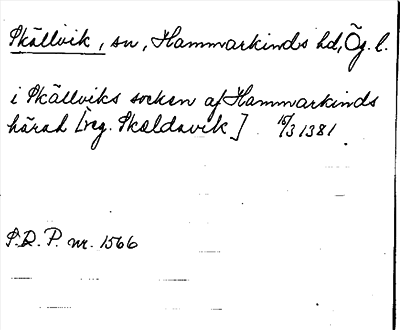 Skällvik, sn, Hammarkinds hd, Ög. l.
i Skällviks socken af Hammarkinds
härad [reg. Skældavik] 15/3 1381
S.D.P. nr. 1566